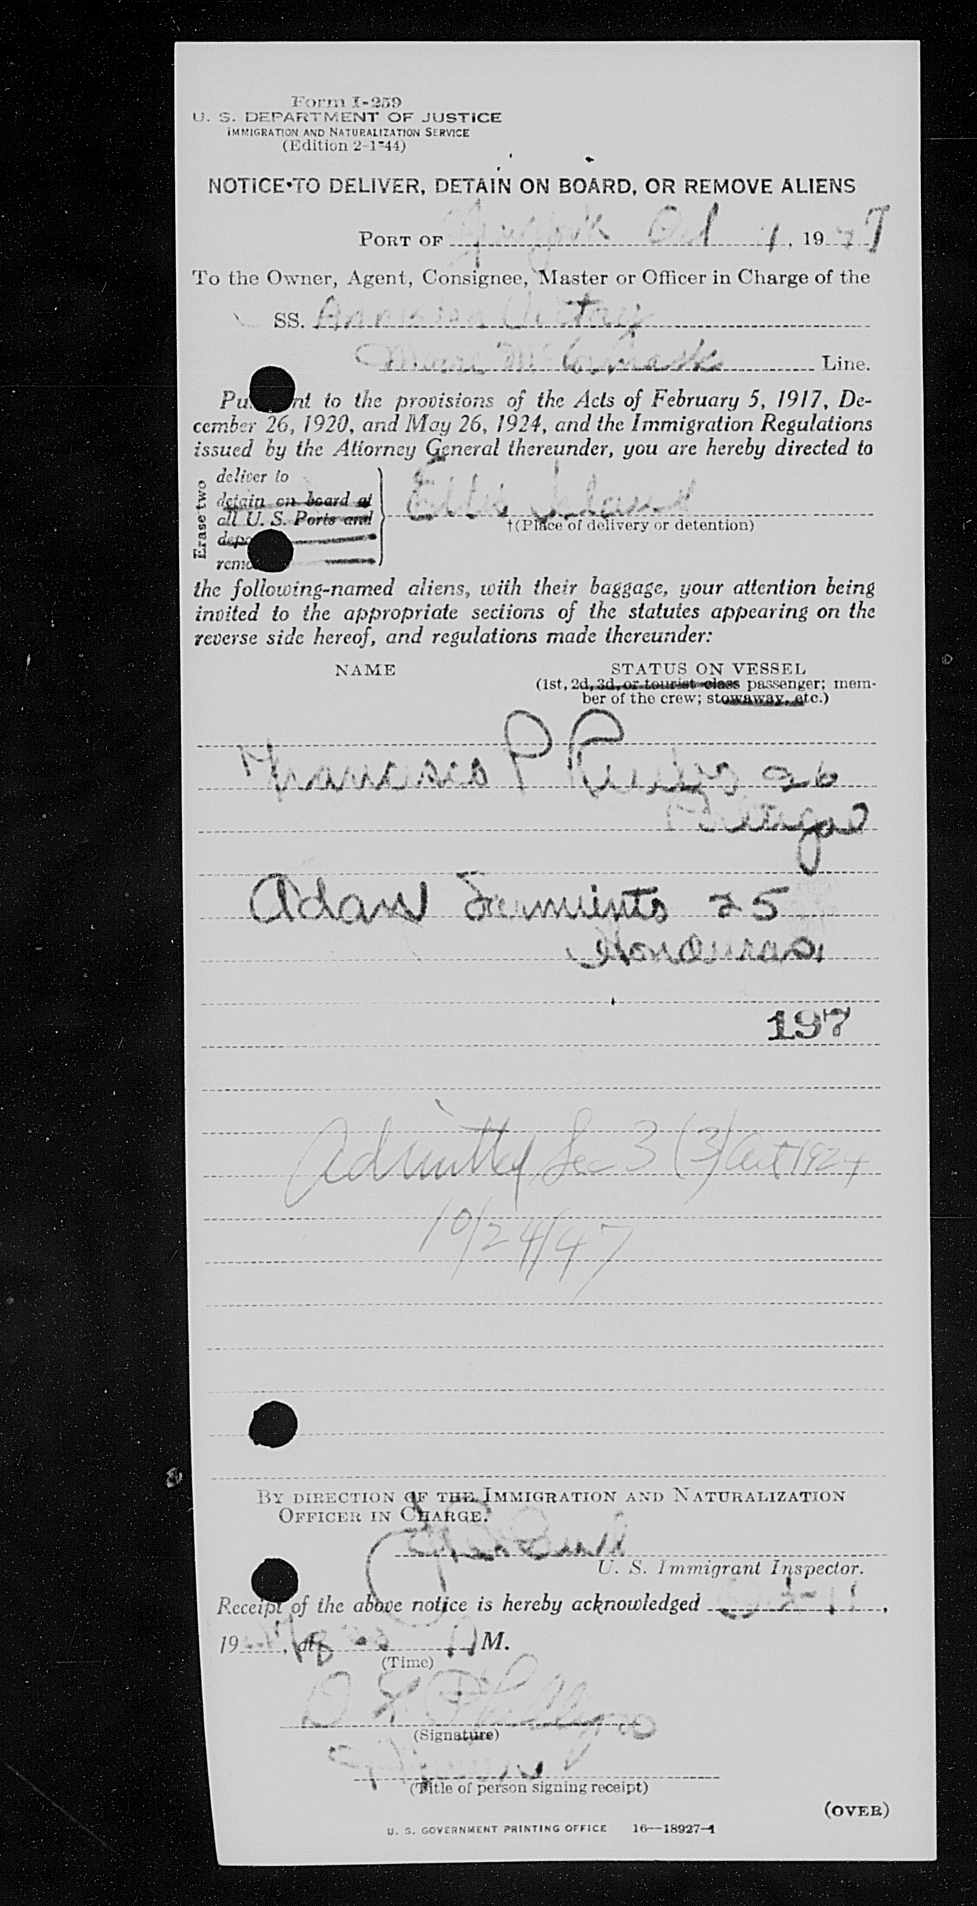 Form I-259
U. S. DEPARTMENT OF JUSTICE
IMMIGRATION AND NATURALIZATION SERVICE
(Edition 2-1-44)
NOTICE TO DELIVER, DETAIN ON BOARD, OR REMOVE ALIENS
PORT OF New York Oct , 1947
To the Owner, Agent, Consignee, Master or Officer in Charge of the
SS. Victory
Moore McCormack Line.
Pu nt to the provisions of the Acts of February 5, 1917, De-
cember 26, 1920, and May 26, 1924, and the Immigration Regulations
issued by the Attorney General thereunder, you are hereby directed to
Erase two
deliver to
detain on board at
all U. S. Ports and
depo
remo
Ellis Island
†(Place of delivery or detention)
the following-named aliens, with their baggage, your attention being
invited to the appropriate sections of the statutes appearing on the
reverse side hereof, and regulations made thereunder:
NAME
STATUS ON VESSEL
(1st, 2d, 3d, or tourist class passenger; mem-
ber of the crew; stowaway, etc.)
Francisco P 26
Portugal
Adan Sarmiento 25
Honduras
197
Admitted Sec 3 (3) Act 1924
10/24/47
BY DIRECTION OF THE IMMIGRATION AND NATURALIZATION
OFFICER IN CHARGE.
U. S. Immigrant Inspector.
Receipt of the above notice is hereby acknowledged ,
19 , at M.
(Time)
(Signature)
(Title of person signing receipt)
(OVER)
U. S. GOVERNMENT PRINTING OFFICE 16—18927-1